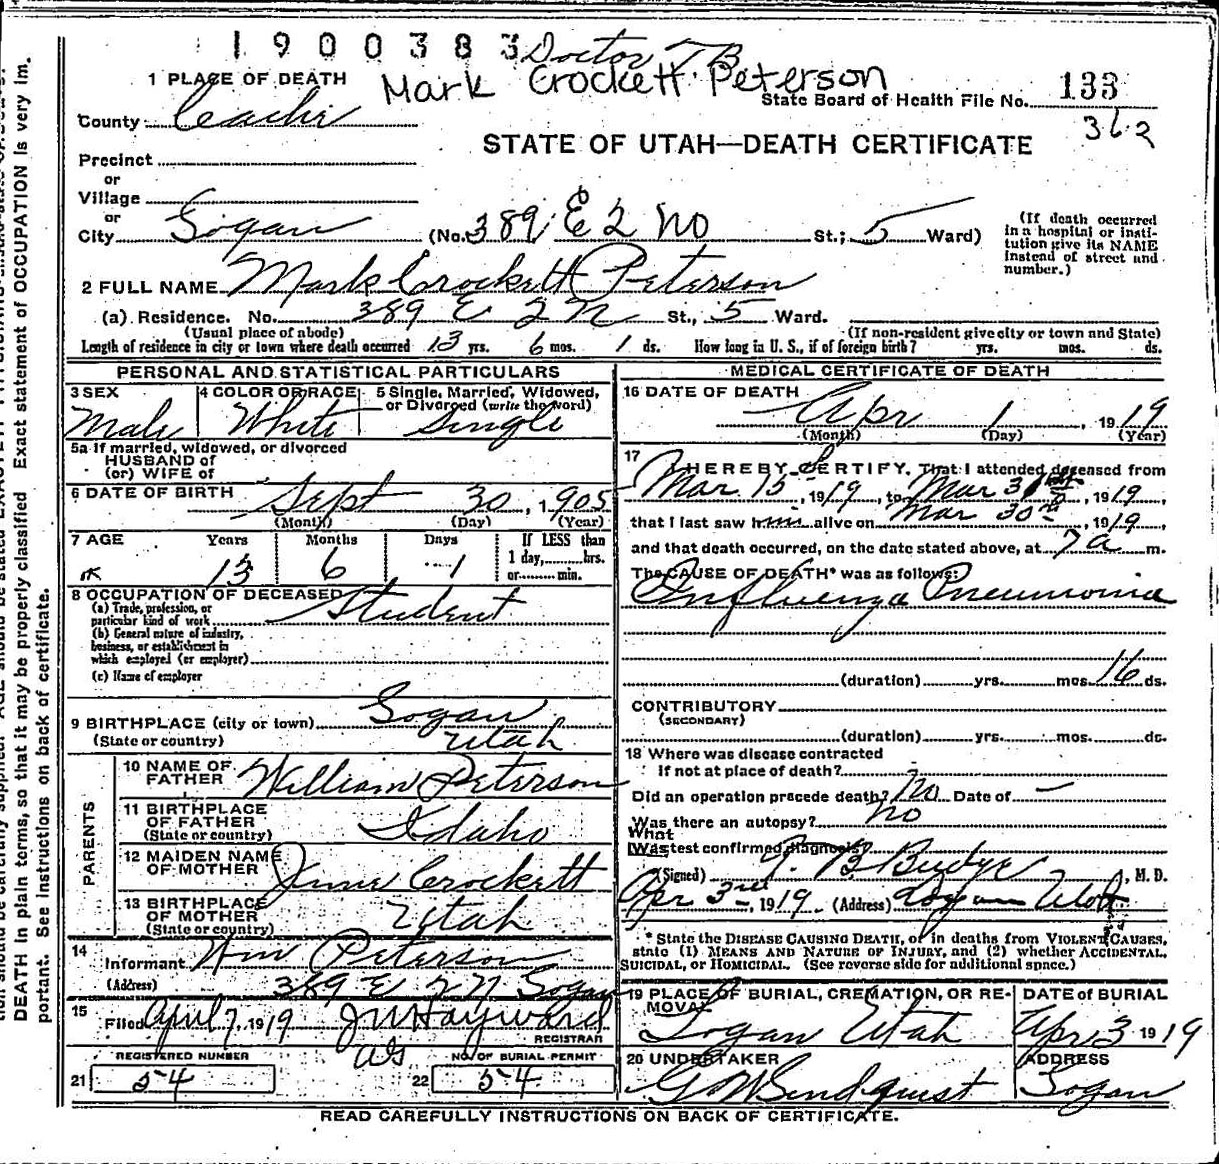 1900383 Doctor TB
1 PLACE OF DEATH Mark Crockett Peterson
State Board of Health File No. 133
County Ceachi 362
STATE OF UTAH—DEATH CERTIFICATE
Precinct
or
Village
or
City Logan (No. 389 E 2 No St.; 5 Ward)
(If death occurred in a hospital or insti-
tution give its NAME
instead of street and
number.)
2 FULL NAME Mark Crockett Peterson
(a). Residence. No. 389 E 2 N St., 5 Ward.
(Usual place of abode) (If non-resident give city or town and State)
Length of residence in city or town where death occurred 13 yrs. 6 mos. 1 ds. How long in U. S., if of foreign birth? yrs. mos. ds.
PERSONAL AND STATISTICAL PARTICULARS
3 SEX 4 COLOR OR RACE 5 Single, Married, Widowed,
or Divorced (write the word)
Male White Single
5a If married, widowed, or divorced
HUSBAND of
(or) WIFE of
6 DATE OF BIRTH Sept 30, 1905
(Month) (Day) (Year)
7 AGE Years Months Days If LESS than
1 day, hrs.
or min.
13 6 1
8 OCCUPATION OF DECEASED Student
(a) Trade, profession, or
particular kind of work
(b) General nature of industry,
business, or establishment in
which employed (or employer)
(c) Name of employer
9 BIRTHPLACE (city or town) Logan
(State or country) Utah
PARENTS
10 NAME OF
FATHER William Peterson
11 BIRTHPLACE
OF FATHER Idaho
(State or country)
12 MAIDEN NAME
OF MOTHER Crockett
13 BIRTHPLACE
OF MOTHER Utah
(State or country)
14
Informant Wm Peterson
(Address) 389 E 2 N Logan
15
Filed April 7, 1919 J M Hayward
REGISTRAR
REGISTERED NUMBER NO. OF BURIAL PERMIT
21 54 22 54
MEDICAL CERTIFICATE OF DEATH
16 DATE OF DEATH
Apr 1, 1919
(Month) (Day) (Year)
17
I HEREBY CERTIFY, That I attended deceased from
Mar. 15, 1919, to Mar 31, 1919,
that I last saw him alive on Mar 30th, 1919,
and that death occurred, on the date stated above, at 7 a m.
The CAUSE OF DEATH* was as follows:
Influenza Pneumonia
(duration) yrs. mos. 16 ds.
CONTRIBUTORY
(SECONDARY)
(duration) yrs. mos. ds.
18 Where was disease contracted
if not at place of death?
Did an operation precede death? No Date of —
Was there an autopsy? no
What
Was test confirmed diagnosis?
(Signed) B Budge, M. D.
Apr 3rd, 1919 (Address) Logan Utah
* State the DISEASE CAUSING DEATH, or in deaths from VIOLENT CAUSES,
state (1) MEANS AND NATURE OF INJURY, and (2) whether ACCIDENTAL,
SUICIDAL, or HOMICIDAL. (See reverse side for additional space.)
19 PLACE OF BURIAL, CREMATION, OR RE-
MOVAL DATE of BURIAL
Logan Utah Apr 3 1919
20 UNDERTAKER ADDRESS
G W Lindquist Logan
READ CAREFULLY INSTRUCTIONS ON BACK OF CERTIFICATE.
DEATH in plain terms, so that it may be properly classified. Exact statement of OCCUPATION is very im-
portant. See instructions on back of certificate.